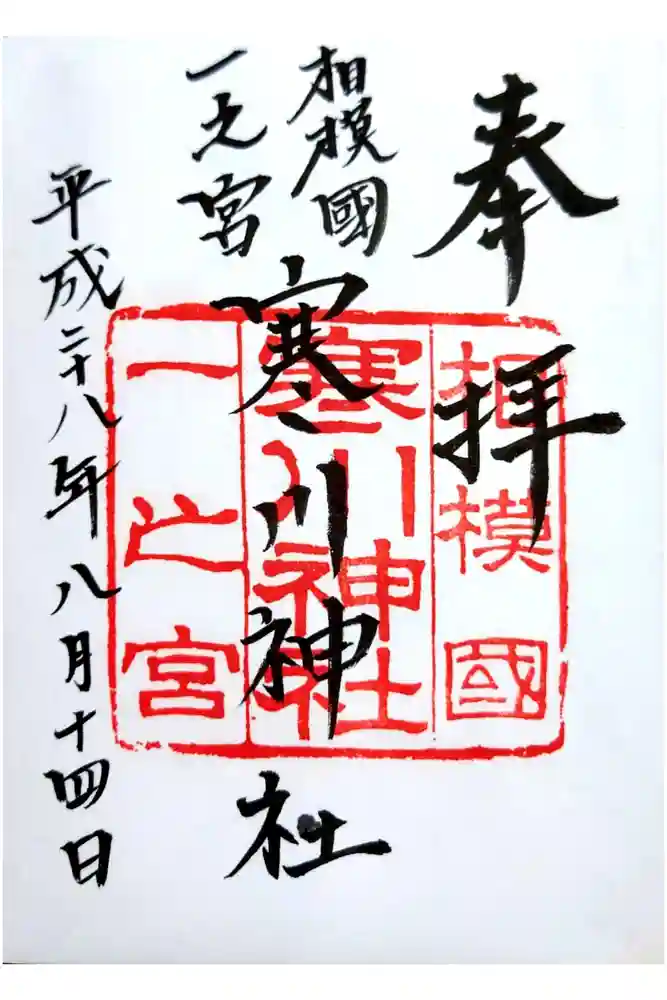 奉拝
相模國
一之宮
寒川神社
平成二十八年八月十四日
相模國
寒川神社
一之宮